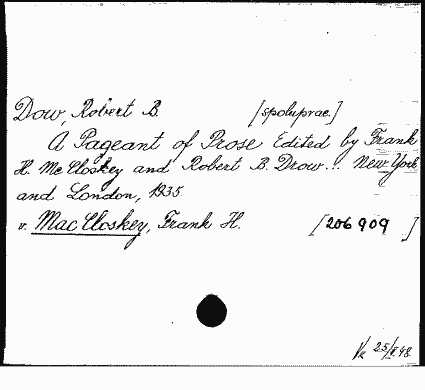 Dow, Robert B. [spoluprac.]
A Pageant of Prose Edited by Frank
H. McCloskey and Robert B. Drow... New York
and London, 1935
v. MacCloskey, Frank H. [206909]
25/V.48